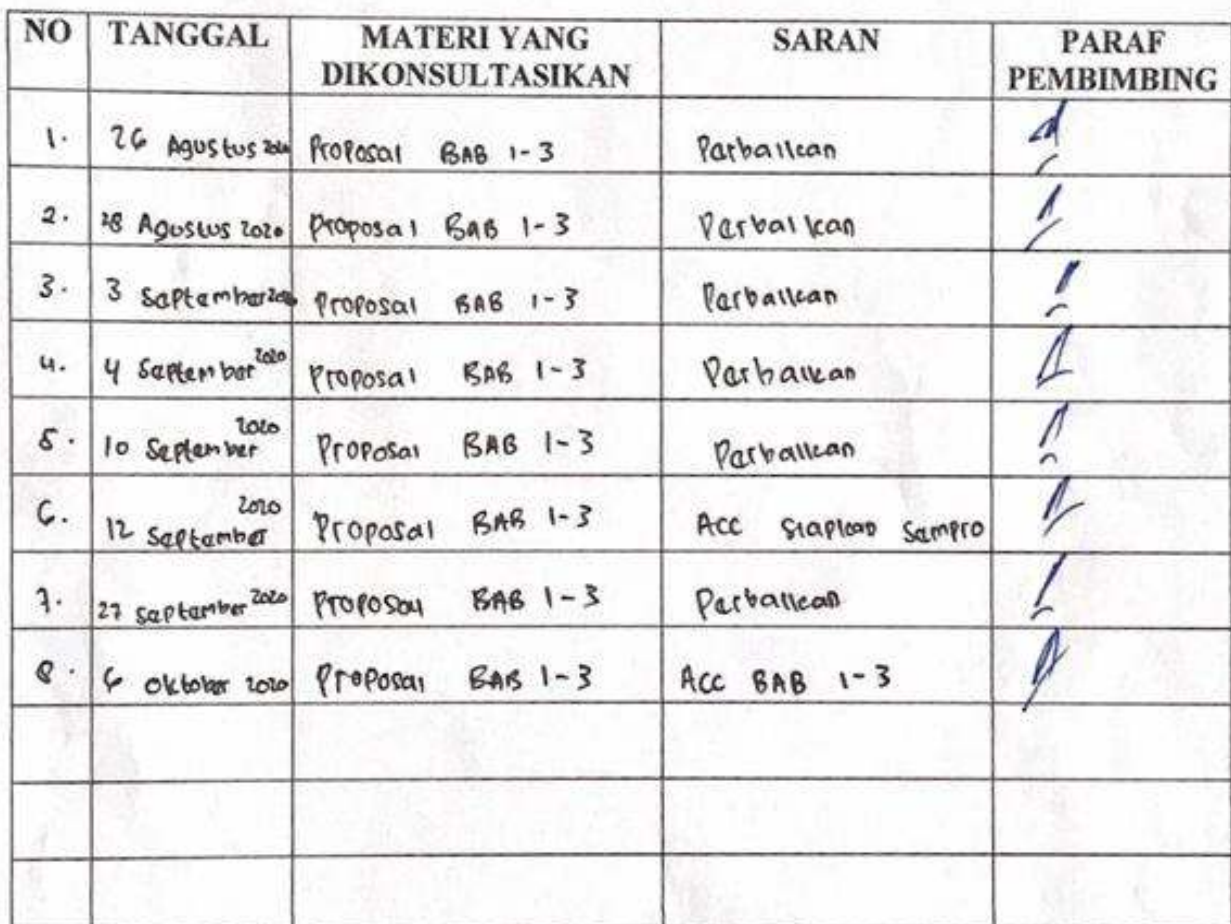 NO TANGGAL MATERI YANG DIKONSULTASIKAN SARAN PARAF PEMBIMBING
1. 26 Agustus 2020 Proposal BAB 1-3 Perbaikan
2. 28 Agustus 2020 Proposal BAB 1-3 Perbaikan
3. 3 September 2020 Proposal BAB 1-3 Perbaikan
4. 4 September 2020 Proposal BAB 1-3 Perbaikan
5. 10 September 2020 Proposal BAB 1-3 Perbaikan
6. 12 September 2020 Proposal BAB 1-3 Acc Siapkan Sempro
7. 27 September 2020 Proposal BAB 1-3 Perbaikan
8. 6 Oktober 2020 Proposal BAB 1-3 Acc BAB 1-3